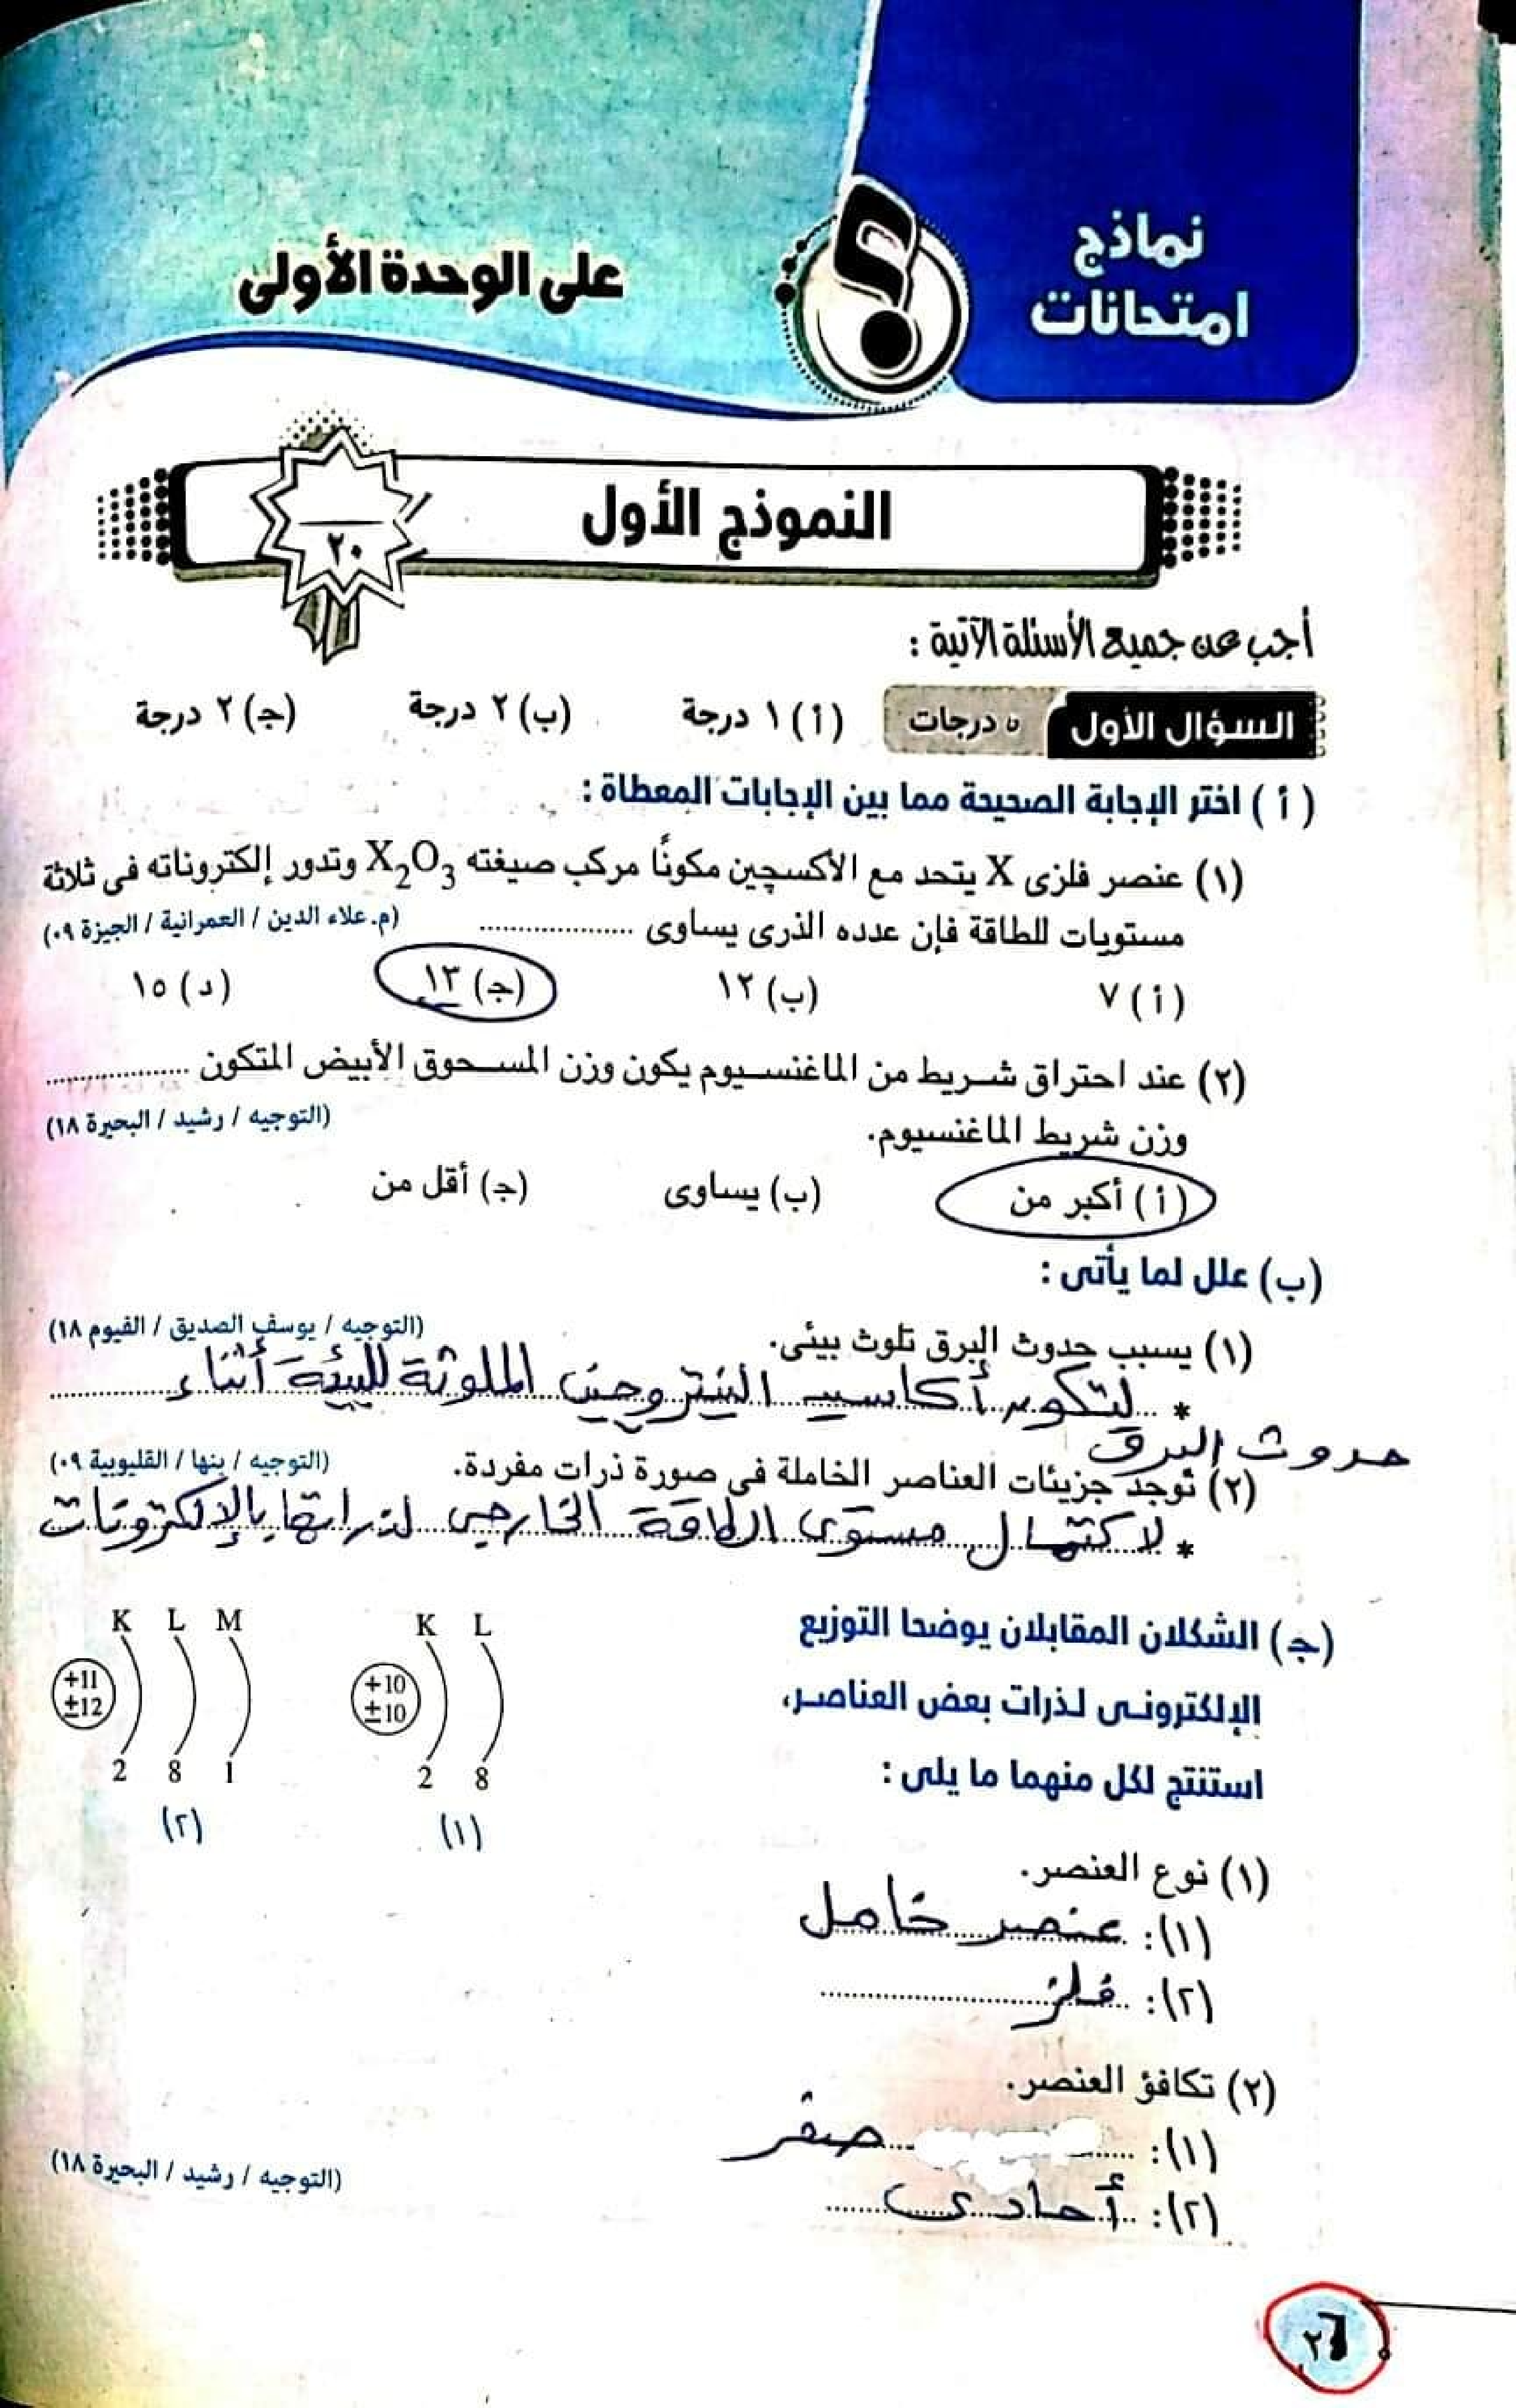 نماذج
امتحانات
على الوحدة الأولى
النموذج الأول
٢٠
أجب عن جميع الأسئلة الآتية :
السؤال الأول ٥ درجات (أ) ١ درجة (ب) ٢ درجة (ج) ٢ درجة
(أ) اختر الإجابة الصحيحة مما بين الإجابات المعطاة :
(١) عنصر فلزى X يتحد مع الأكسچين مكونًا مركب صيغته X₂O₃ وتدور إلكتروناته فى ثلاثة
مستويات للطاقة فإن عدده الذرى يساوى .................. (م. علاء الدين / العمرانية / الجيزة ٠٩)
(أ) ٧ (ب) ١٢ (ج) ١٣ (د) ١٥
(٢) عند احتراق شريط من الماغنسيوم يكون وزن المسحوق الأبيض المتكون ..................
وزن شريط الماغنسيوم. (التوجيه / رشيد / البحيرة ١٨)
(أ) أكبر من (ب) يساوى (ج) أقل من
(ب) علل لما يأتى :
(١) يسبب حدوث البرق تلوث بيئى. (التوجيه / يوسف الصديق / الفيوم ١٨)
* لتكون أكاسيد النيتروجين الملوثة للبيئة أثناء
حدوث البرق
(٢) توجد جزيئات العناصر الخاملة فى صورة ذرات مفردة. (التوجيه / بنها / القليوبية ٠٩)
* لاكتمال مستوى الطاقة الخارجى لذراتها بالإلكترونات
(ج) الشكلان المقابلان يوضحا التوزيع
الإلكترونى لذرات بعض العناصر،
استنتج لكل منهما ما يلى :
K L
+10
±10
2 8
(١)
K L M
+11
±12
2 8 1
(٢)
(١) نوع العنصر.
(١): عنصر خامل
(٢): فلز
(٢) تكافؤ العنصر.
(١): صفر
(٢): أحادى
(التوجيه / رشيد / البحيرة ١٨)